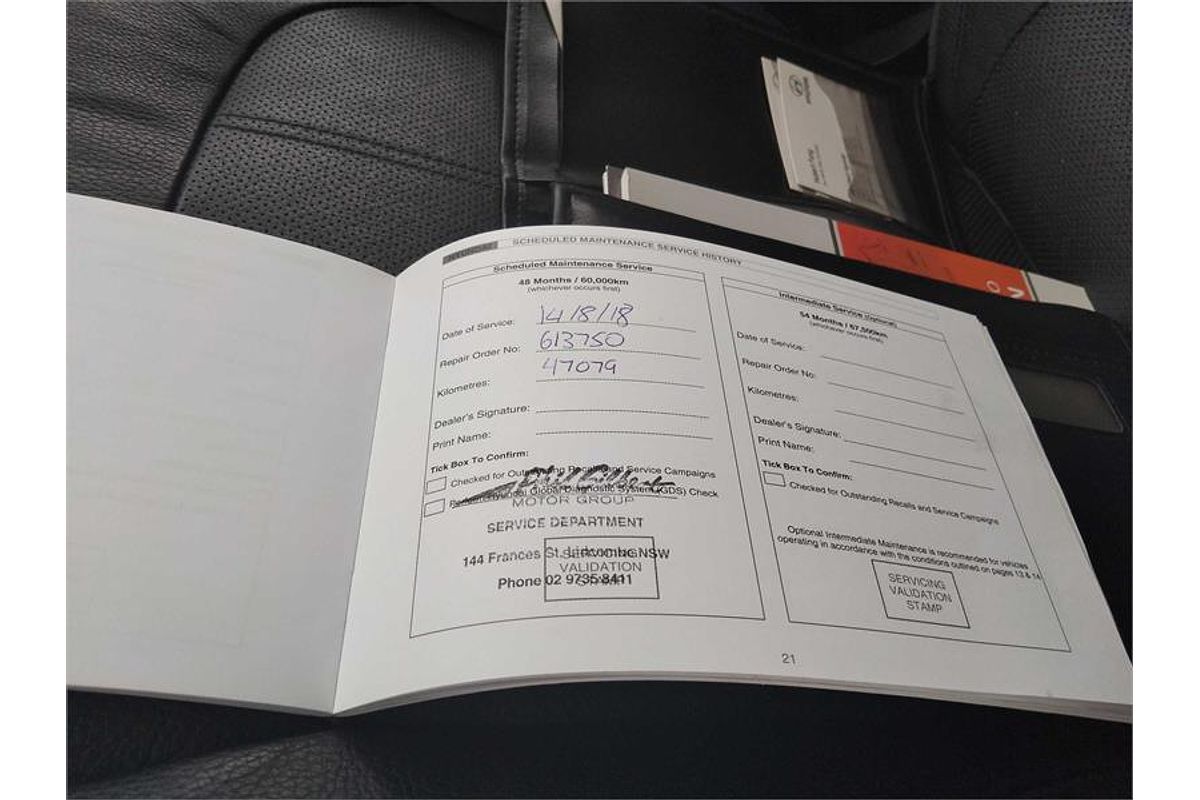 HYUNDAI SCHEDULED MAINTENANCE SERVICE HISTORY
Scheduled Maintenance Service
48 Months / 60,000km
(whichever occurs first)
Date of Service: 14/8/18
Repair Order No: 613750
Kilometres: 47079
Dealer's Signature:
Print Name:
Tick Box To Confirm:
Checked for Outstanding Recalls and Service Campaigns
Perform Hyundai Global Diagnostic System (GDS) Check
Phil Gilbert
MOTOR GROUP
SERVICE DEPARTMENT
144 Frances St. Lidcombe NSW
Phone 02 9735 8411
SERVICING
VALIDATION
STAMP
Intermediate Service (Optional)
54 Months / 67,500km
(whichever occurs first)
Date of Service:
Repair Order No:
Kilometres:
Dealer's Signature:
Print Name:
Tick Box To Confirm:
Checked for Outstanding Recalls and Service Campaigns
Optional Intermediate Maintenance is recommended for vehicles
operating in accordance with the conditions outlined on pages 13 & 14
SERVICING
VALIDATION
STAMP
21